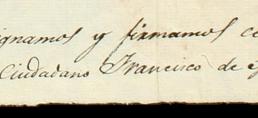 ignamos y firmamos
Ciudadano Francisco de